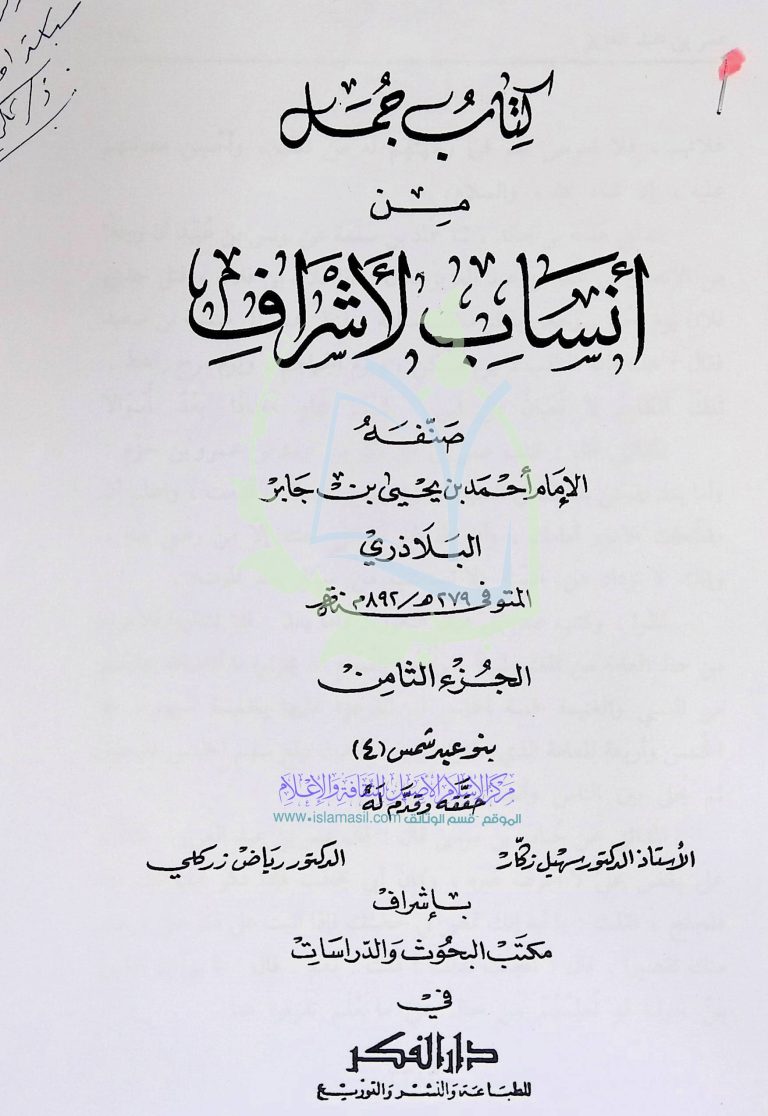 كِتَابُ جُمَل
مِن
أَنْسَابِ الأَشْرَافِ
صَنّفَهُ
الإمَام أحْمَد بن يَحْيَى بن جَابِر
البَلَاذري
المتوفى ٢٧٩ هـ/ ٨٩٢م
الجُزء الثامن
بنو عبد شمس (٤)
مركز الإسلام الأصيل للثقافة والإعلام
حَقّقَهُ وَقَدّم لَهُ
الموقع - قسم الوثائق www.islamasil.com
الأستاذ الدكتور سهيل زكّار الدكتور رياض زركلي
بإشراف
مكتب البحُوث وَالدّراسَات
في
دار الفكر
للطبَاعَة وَالنّشر وَالتوزيع